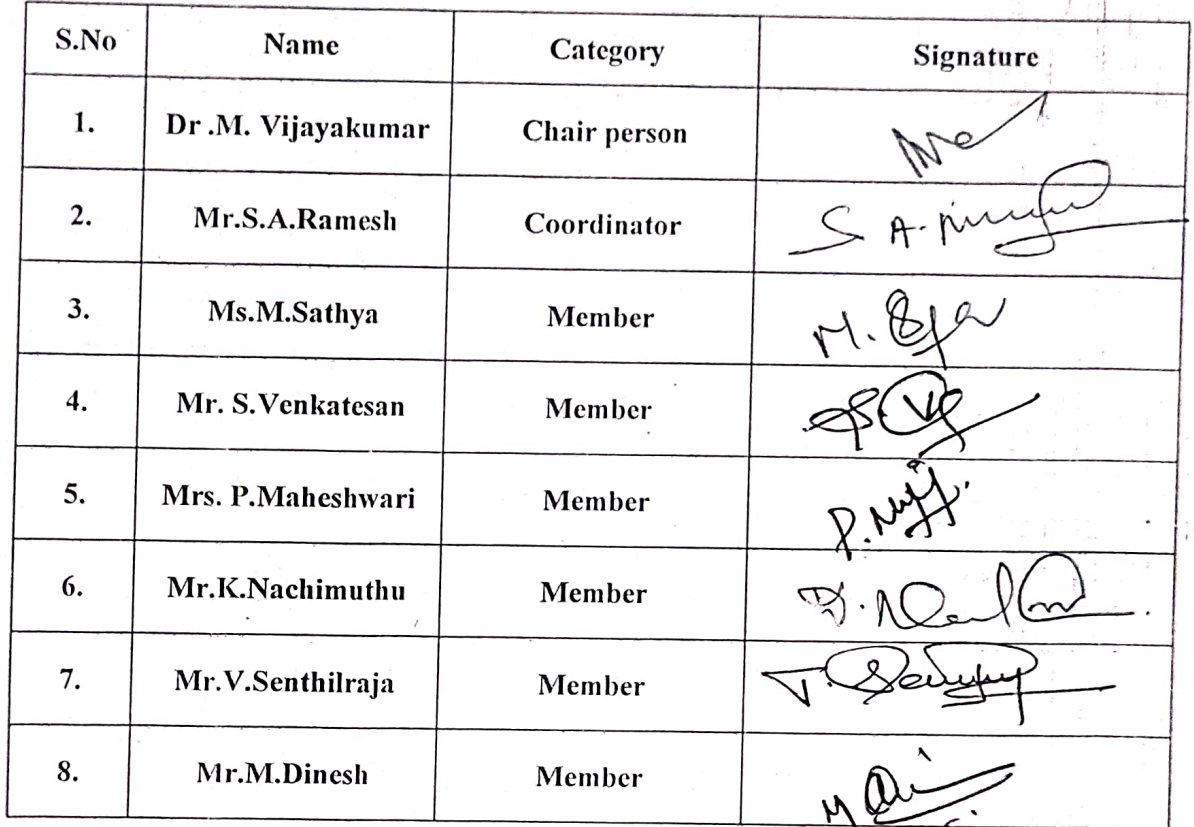 S.No Name Category Signature
1. Dr .M. Vijayakumar Chair person
2. Mr.S.A.Ramesh Coordinator S A.
3. Ms.M.Sathya Member M.
4. Mr. S.Venkatesan Member
5. Mrs. P.Maheshwari Member P.
6. Mr.K.Nachimuthu Member
7. Mr.V.Senthilraja Member
8. Mr.M.Dinesh Member M